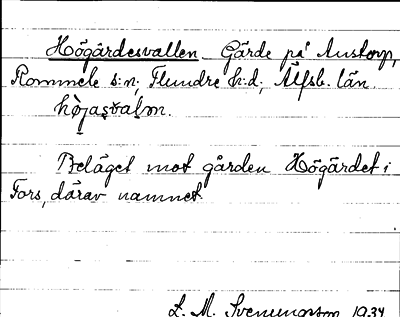 Högärdesvallen Gärde på Austorp,
Rommele s:n, Flundre h:d, Älfsb. län.
højasvalm.
Beläget mot gården Högärdet i
Fors, därav namnet
L. M. Svenungsson 1934